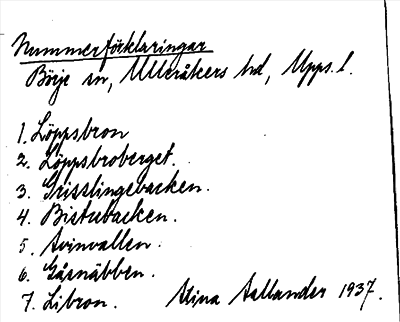 Nummerförklaringar
Börje sn, Ulleråkers hd, Upps. l.
1. Löppsbron
2. Löppsbroberget.
3. Grisslingebacken.
4. Bistubacken.
5. Svinvallen.
6. Gåsnäbben.
7. Libron. Stina Sellander 1937.